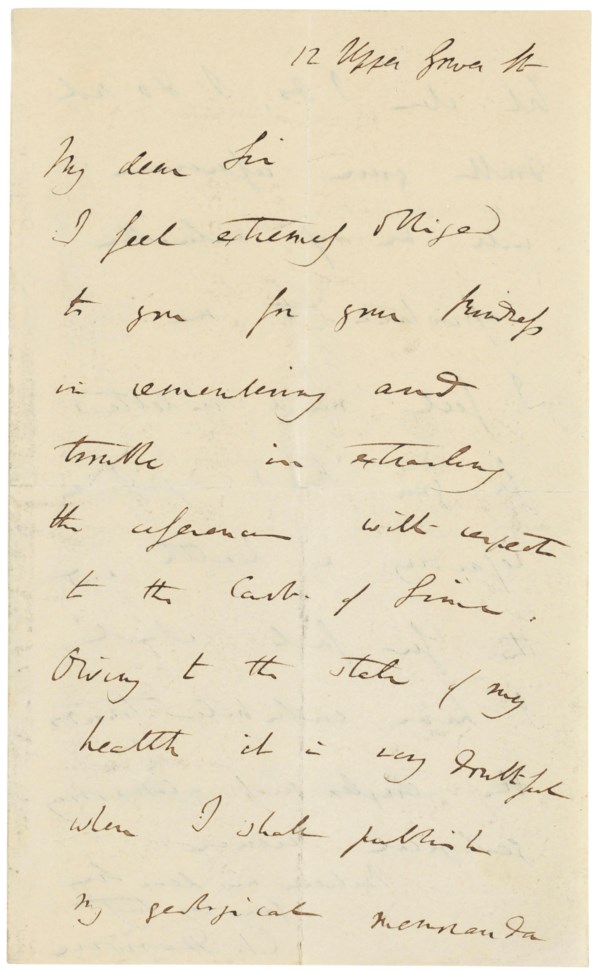 12 Upper Gower St
My dear Sir
I feel extremely obliged
to you for your kindness
in remembering and
trouble in extracting
the references with respect
to the Carb. of Lime.
Owing to the state of my
health it is very doubtful
when I shall publish
my geological memoranda